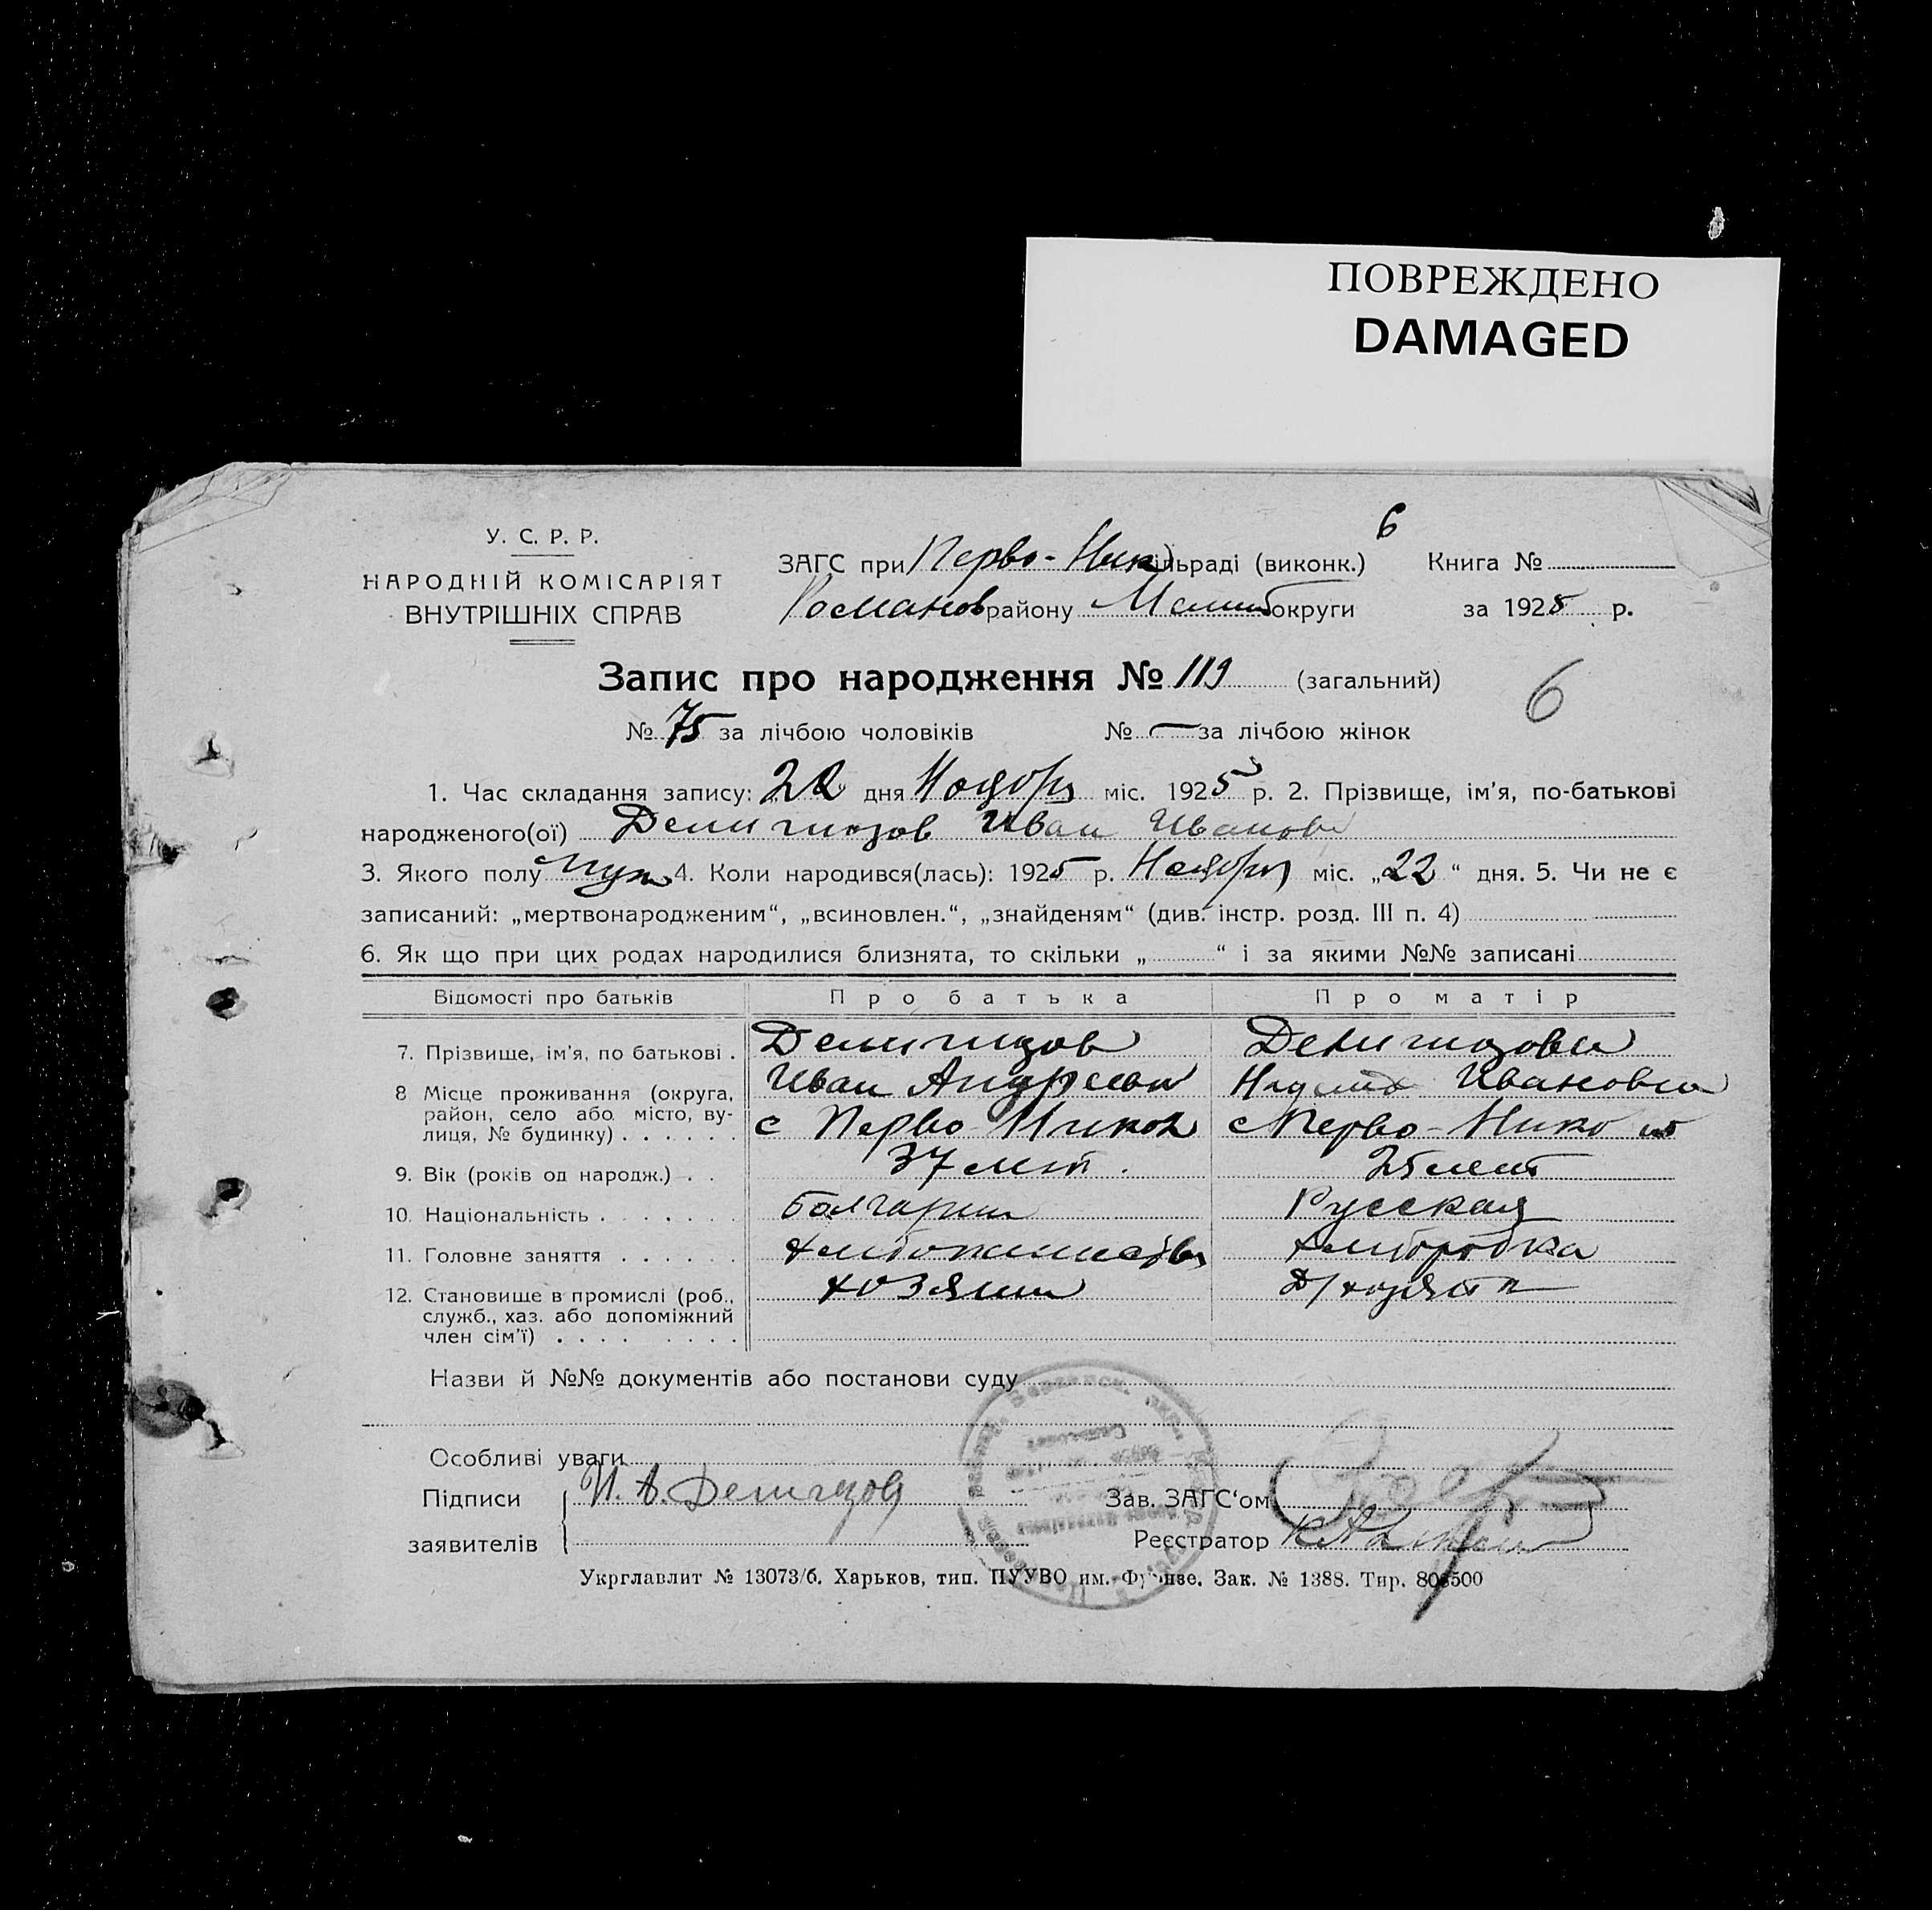 ПОВРЕЖДЕНО
DAMAGED
6
У. С. Р. Р.
НАРОДНІЙ КОМІСАРІЯТ
ВНУТРІШНІХ СПРАВ
ЗАГС при Перво-Ник сільраді (виконк.) Книга №
Романов району Мелит округи за 1925 р.
Запис про народження № 119 (загальний)
6
№ 75 за лічбою чоловіків № — за лічбою жінок
1. Час складання запису: 22 дня Ноября міс. 1925 р. 2. Прізвище, ім'я, по-батькові
народженого(ої) Делигиозов Иван Иванов
3. Якого полу муж 4. Коли народився(лась): 1925 р. Ноября міс. „22“ дня. 5. Чи не є
записаний: „мертвонародженим“, „всиновлен.“, „знайденям“ (див. інстр. розд. III п. 4)
6. Як що при цих родах народилися близнята, то скільки „ “ і за якими №№ записані
Відомості про батьків Про батька Про матір
7. Прізвище, ім'я, по батькові . Делигиозов Делигиозова
8 Місце проживання (округа, район, село або місто, вулиця, № будинку) Иван Андреевич Ивановна
с Перво Никол с Перво-Нико
9. Вік (років од народж.) . . 37 лет. 25 лет
10. Національність . Болгарин Русская
11. Головне заняття Хлебопашество Хлеборобка
12. Становище в промислі (роб., служб., хаз. або допоміжний член сім'ї) хозяин
Назви й №№ документів або постанови суду
Особливі уваги
Підписи И. А. Делигиозов Зав. ЗАГС'ом
заявителів Реєстратор
Укрглавлит № 13073/б. Харьков, тип. ПУУВО им. Фрунзе. Зак. № 1388. Тир.